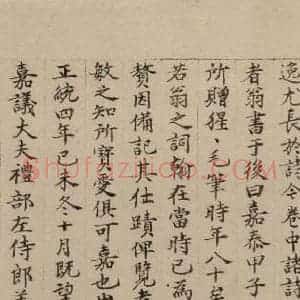 逸尤長於詩今卷中諸詩
者翁書于後曰嘉泰甲子
所贈猩〻毛筆時年八十
若翁之詞翰在當時已為
贅因備記其仕蹟俾覽者
敏之知所寳愛俱可嘉也
正統四年己未冬十月既望
嘉議大夫禮部左侍郎